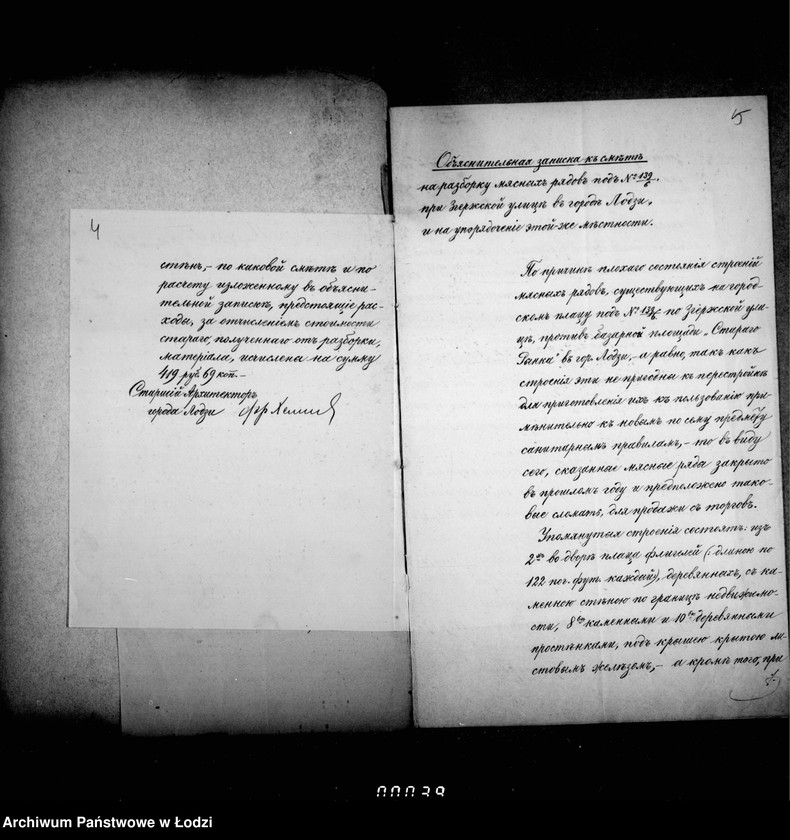 4
стѣнъ,- по каковой смѣтѣ и по
расчету изложенному въ объясни-
тельной запискѣ, предстоящіе рас-
ходы, за отчисленіемъ стоимости
стараго, полученнаго отъ разборки,
матеріала, исчислены на сумму
419 руб. 69 коп.-
Старшій Архитекторъ
города Лодзи
5
Объяснительная записка къ смѣтѣ
на разборку мясныхъ рядовъ подъ № 139/6.
при Згержской улицѣ въ городѣ Лодзи,
и на упорядоченіе этой-же мѣстности.
По причинѣ плохаго состоянія строеній
мясныхъ рядовъ, существующихъ на город-
скомъ плацу подъ № 139/6 по Згержской ули-
цѣ, противъ базарной площади „Стараго
Рынка" въ гор. Лодзи,- а равно, такъ какъ
строенія эти не пригодны къ перестройкѣ
для приготовленія ихъ къ пользованію при-
мѣнительно къ новымъ по сему предмету
санитарнымъ правиламъ,- то въ виду
сего, сказанные мясные ряды закрыто
въ прошломъ году и предположено тако-
вые сломать, для продажи съ торговъ.
Упомянутыя строенія состоятъ: изъ
2хъ во дворѣ плаца флигелей (длиною по
122 пог. фут. каждый), деревянныхъ, съ ка-
менною стѣною по границѣ недвижимо-
сти, 8ю каменными и 10ю деревянными
простѣнками, подъ крышею крытою ли-
стовымъ желѣзомъ,- а кромѣ того, при
00039
Archiwum Państwowe w Łodzi